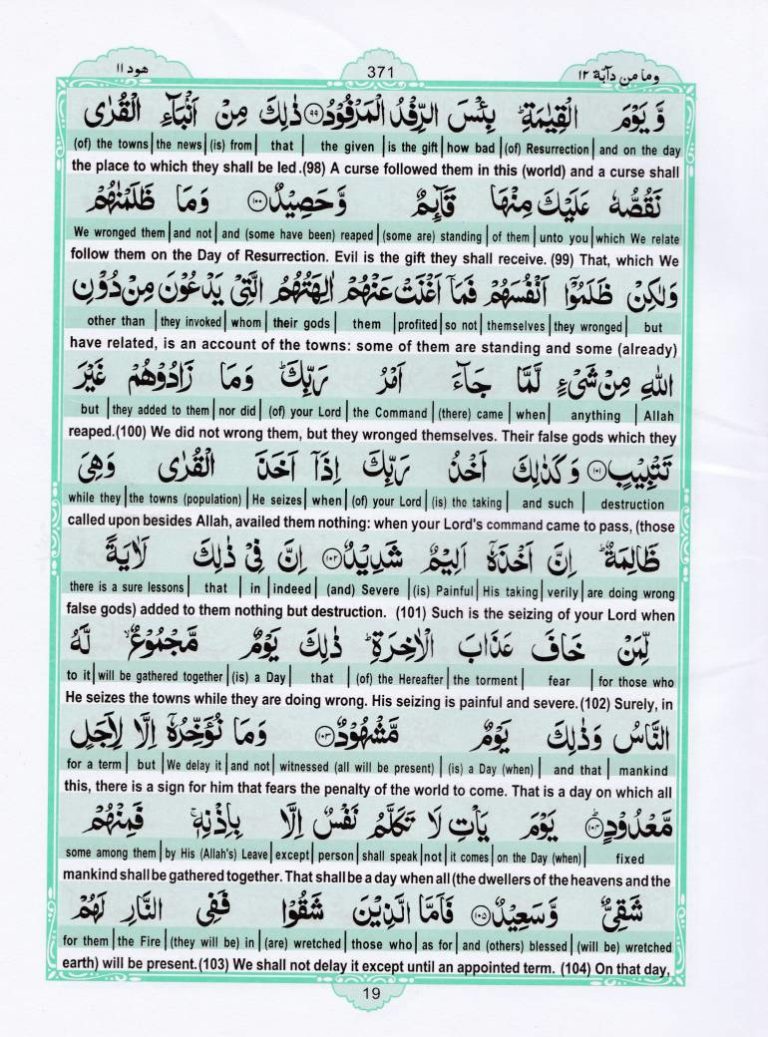 هود ١١ 371 وما من دآبة ١٢
وَّ يَوْمَ الْقِيٰمَةِؕ بِئْسَ الرِّفْدُ الْمَرْفُوْدُ ۹۹ ذٰلِكَ مِنْ اَنْۢبَآءِ الْقُرٰى
(of) the towns | the news | (is) from | that | the given | is the gift | how bad | (of) Resurrection | and on the day
the place to which they shall be led .(98) A curse followed them in this (world) and a curse shall
نَقُصُّهٗ عَلَيْكَ مِنْهَا قَآىِٕمٌ وَّحَصِيْدٌ ۱۰۰ وَمَا ظَلَمْنٰهُمْ
We wronged them | and not | and (some have been) reaped | (some are) standing | of them | unto you | which We relate
follow them on the Day of Resurrection. Evil is the gift they shall receive. (99) That, which We
وَلٰكِنْ ظَلَمُوْۤا اَنْفُسَهُمْ فَمَاۤ اَغْنَتْ عَنْهُمْ اٰلِهَتُهُمُ الَّتِيْ يَدْعُوْنَ مِنْ دُوْنِ
other than | they invoked | whom | their gods | them | profited | so not | themselves | they wronged | but
have related, is an account of the towns: some of them are standing and some (already)
اللّٰهِ مِنْ شَيْءٍ لَّمَّا جَآءَ اَمْرُ رَبِّكَؕ وَمَا زَادُوْهُمْ غَيْرَ
but | they added to them | nor did | (of) your Lord | the Command | (there) came | when | anything | Allah
reaped.(100) We did not wrong them, but they wronged themselves. Their false gods which they
تَتْبِيْبٍ ۱۰۱ وَكَذٰلِكَ اَخْذُ رَبِّكَ اِذَاۤ اَخَذَ الْقُرٰى وَهِيَ
while they | the towns (population) | He seizes | when | (of) your Lord | (is) tho taking | and such | destruction
called upon besides Allah, availed them nothing: when your Lord's command came to pass, (those
ظَالِمَةٌؕ اِنَّ اَخْذَهٗۤ اَلِيْمٌ شَدِيْدٌ ۱۰۲ اِنَّ فِيْ ذٰلِكَ لَاٰيَةً
there is a sure lessons | that | in | indeed | (and) Severe | (is) Painful | His taking | verily | are doing wrong
false gods) added to them nothing but destruction. (101) Such is the seizing of your Lord when
لِّمَنْ خَافَ عَذَابَ الْاٰخِرَةِؕ ذٰلِكَ يَوْمٌ مَّجْمُوْعٌۙ لَّهُ
to it | will be gathered together | (is) a Day | that | (of) the Hereafter | the torment | fear | for those who
He seizes the towns while they are doing wrong. His seizing is painful and severe.(102) Surely, in
النَّاسُ وَذٰلِكَ يَوْمٌ مَّشْهُوْدٌ ۱۰۳ وَمَا نُؤَخِّرُهٗۤ اِلَّا لِاَجَلٍ
for a term | but | We delay it | and not | witnessed (all will be present) | (is) a Day (when) | and that | mankind
this, there is a sign for him that fears the penalty of the world to come. That is a day on which all
مَّعْدُوْدٍؕ ۱۰۴ يَوْمَ يَاْتِ لَا تَكَلَّمُ نَفْسٌ اِلَّا بِاِذْنِهٖۚ فَمِنْهُمْ
some among them | by His (Allah's) Leave | except | person | shall speak | not | it comes | on the Day (when) | fixed
mankind shall be gathered together. That shall be a day when all (the dwellers of the heavens and the
شَقِيٌّ وَّسَعِيْدٌ ۱۰۵ فَاَمَّا الَّذِيْنَ شَقُوْا فَفِي النَّارِ لَهُمْ
for them | the Fire | (they will be) in | (are) wretched | those who | as for | and (others) blessed | (will be) wretched
earth) will be present.(103) We shall not delay it except until an appointed term. (104) On that day,
19